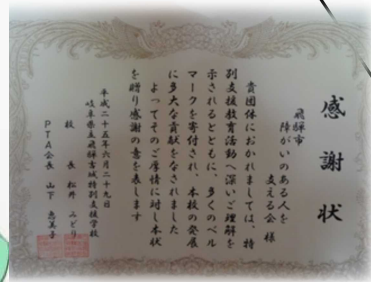 感謝状
飛騨市
障がいのある人を
支える会 様
貴団体におかれましては、特
別支援教育活動へ深いご理解を
示されるとともに、多くのベル
マークを寄付され、本校の発展
に多大な貢献をなされました
よってそのご厚情に対し本状
を贈り感謝の意を表します
平成二十五年六月二十九日
岐阜県立飛騨吉城特別支援学校
校長 松井 みどり
PTA会長 山下 恵美子